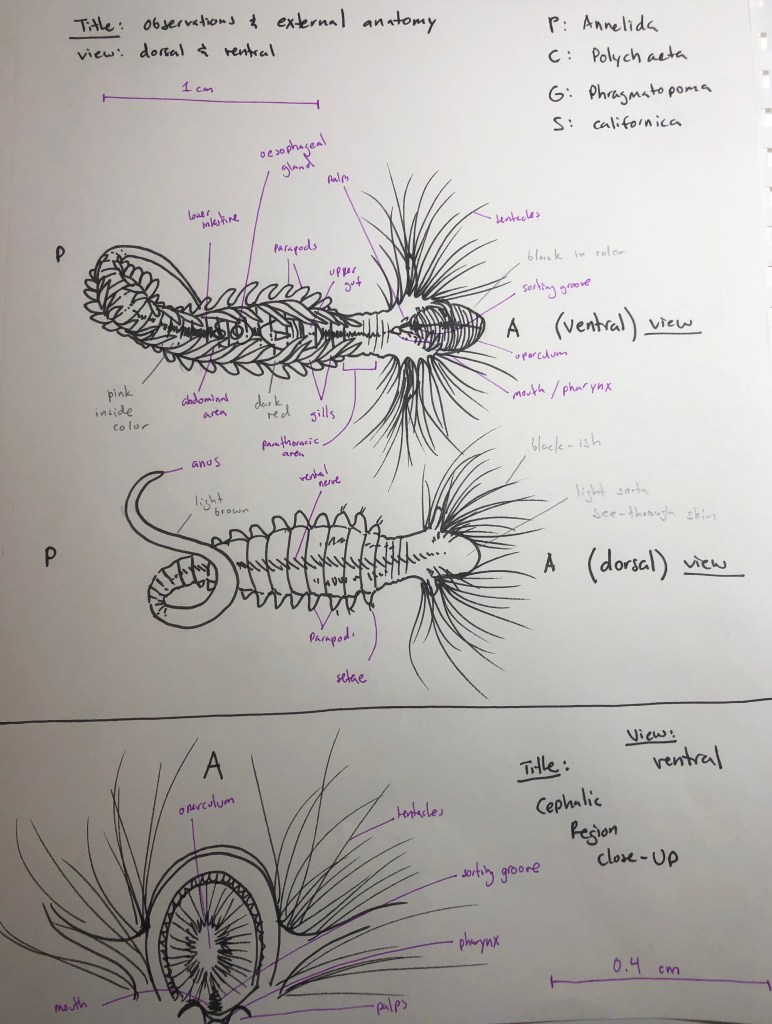 Title: observations & external anatomy
view: dorsal & ventral
P: Annelida
C: Polychaeta
G: Phragmatopoma
S: californica
1 cm
oesophageal
gland
palps
tentacles
lower
intestine
parapods
upper
gut
black in color
sorting groove
P
A (ventral) view
operculum
mouth / pharynx
pink
inside
color
abdominal
area
dark
red
gills
parathoracic
area
anus
ventral
nerve
black-ish
light
brown
light sorta
see-through skin
P
A (dorsal) view
parapods
setae
View:
ventral
Title:
Cephalic
Region
Close-Up
A
operculum
tentacles
sorting groove
pharynx
0.4 cm
mouth
palps